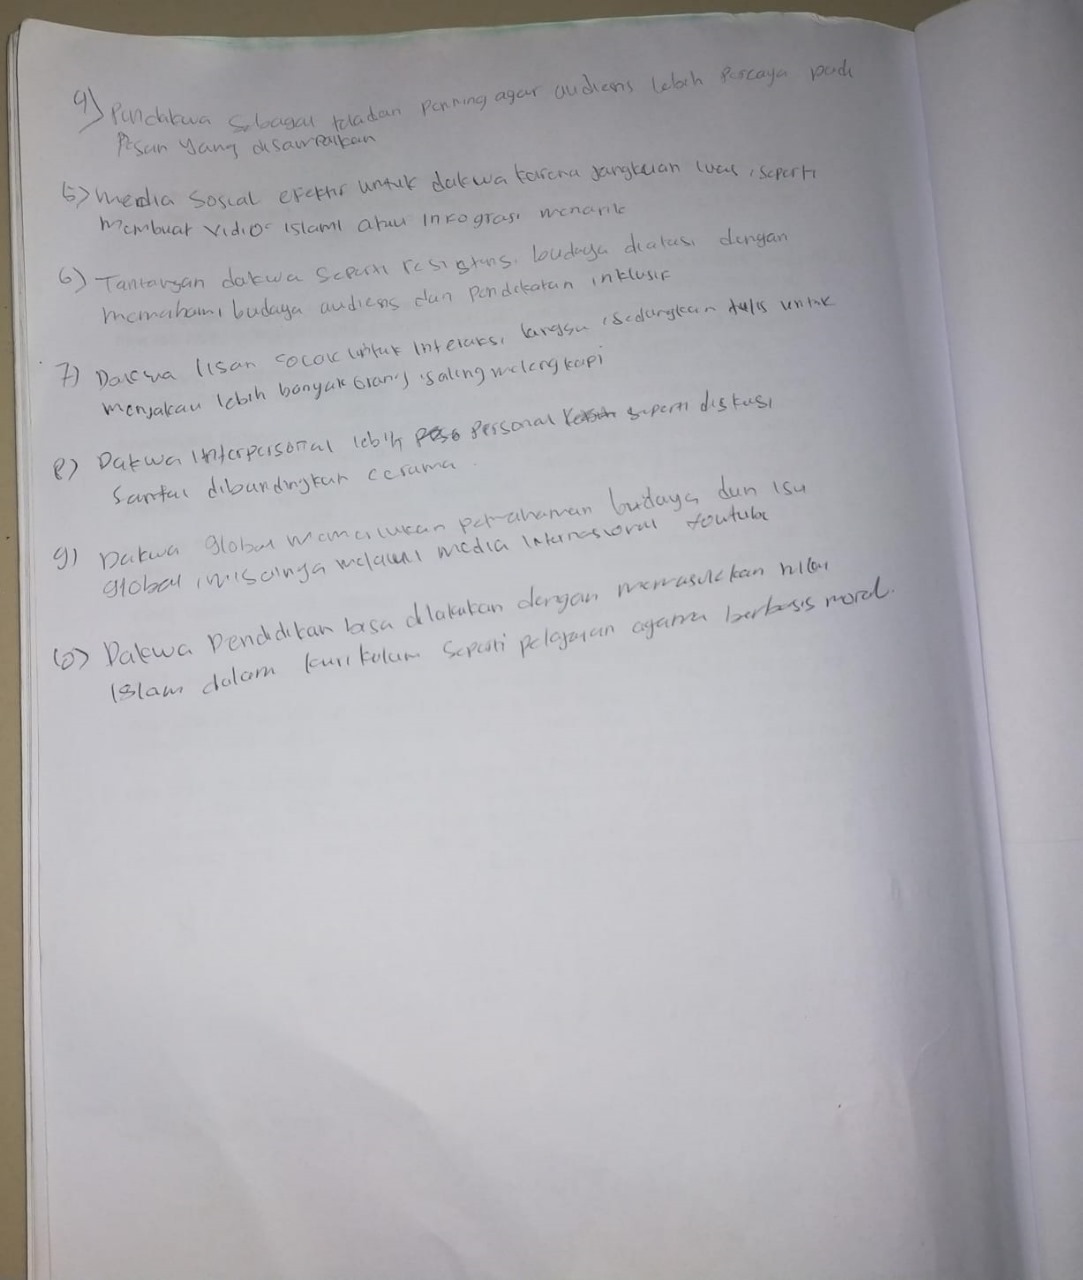 4) Pendakwa sebagai teladan penting agar audiens lebih percaya pada
Pesan yang disampaikan
5) media Sosial efektif untuk dakwa karena jangkuan luas, seperti
membuat vidio islami atau infograsi menarik
6) Tantangan dakwa seperti resistens. budaya diatasi dengan
memahami budaya audiens dan pendekatan inklusif
7) Dakwa lisan cocok untuk interaksi langsu, sedangkan tulis untuk
menjakau lebih banyak orang, saling melengkapi
8) Dakwa interpersonal lebih personal seperti diskusi
santai dibandingkan cerama.
9) Dakwa global memerlukan pemahaman budaya dan isu
global, misalnya melalui media internasional Youtube
10) Dakwa pendidikan bisa dilakukan dengan memasukkan nilai
Islam dalam kurikolum seperti pelajaran agama berbasis moral.